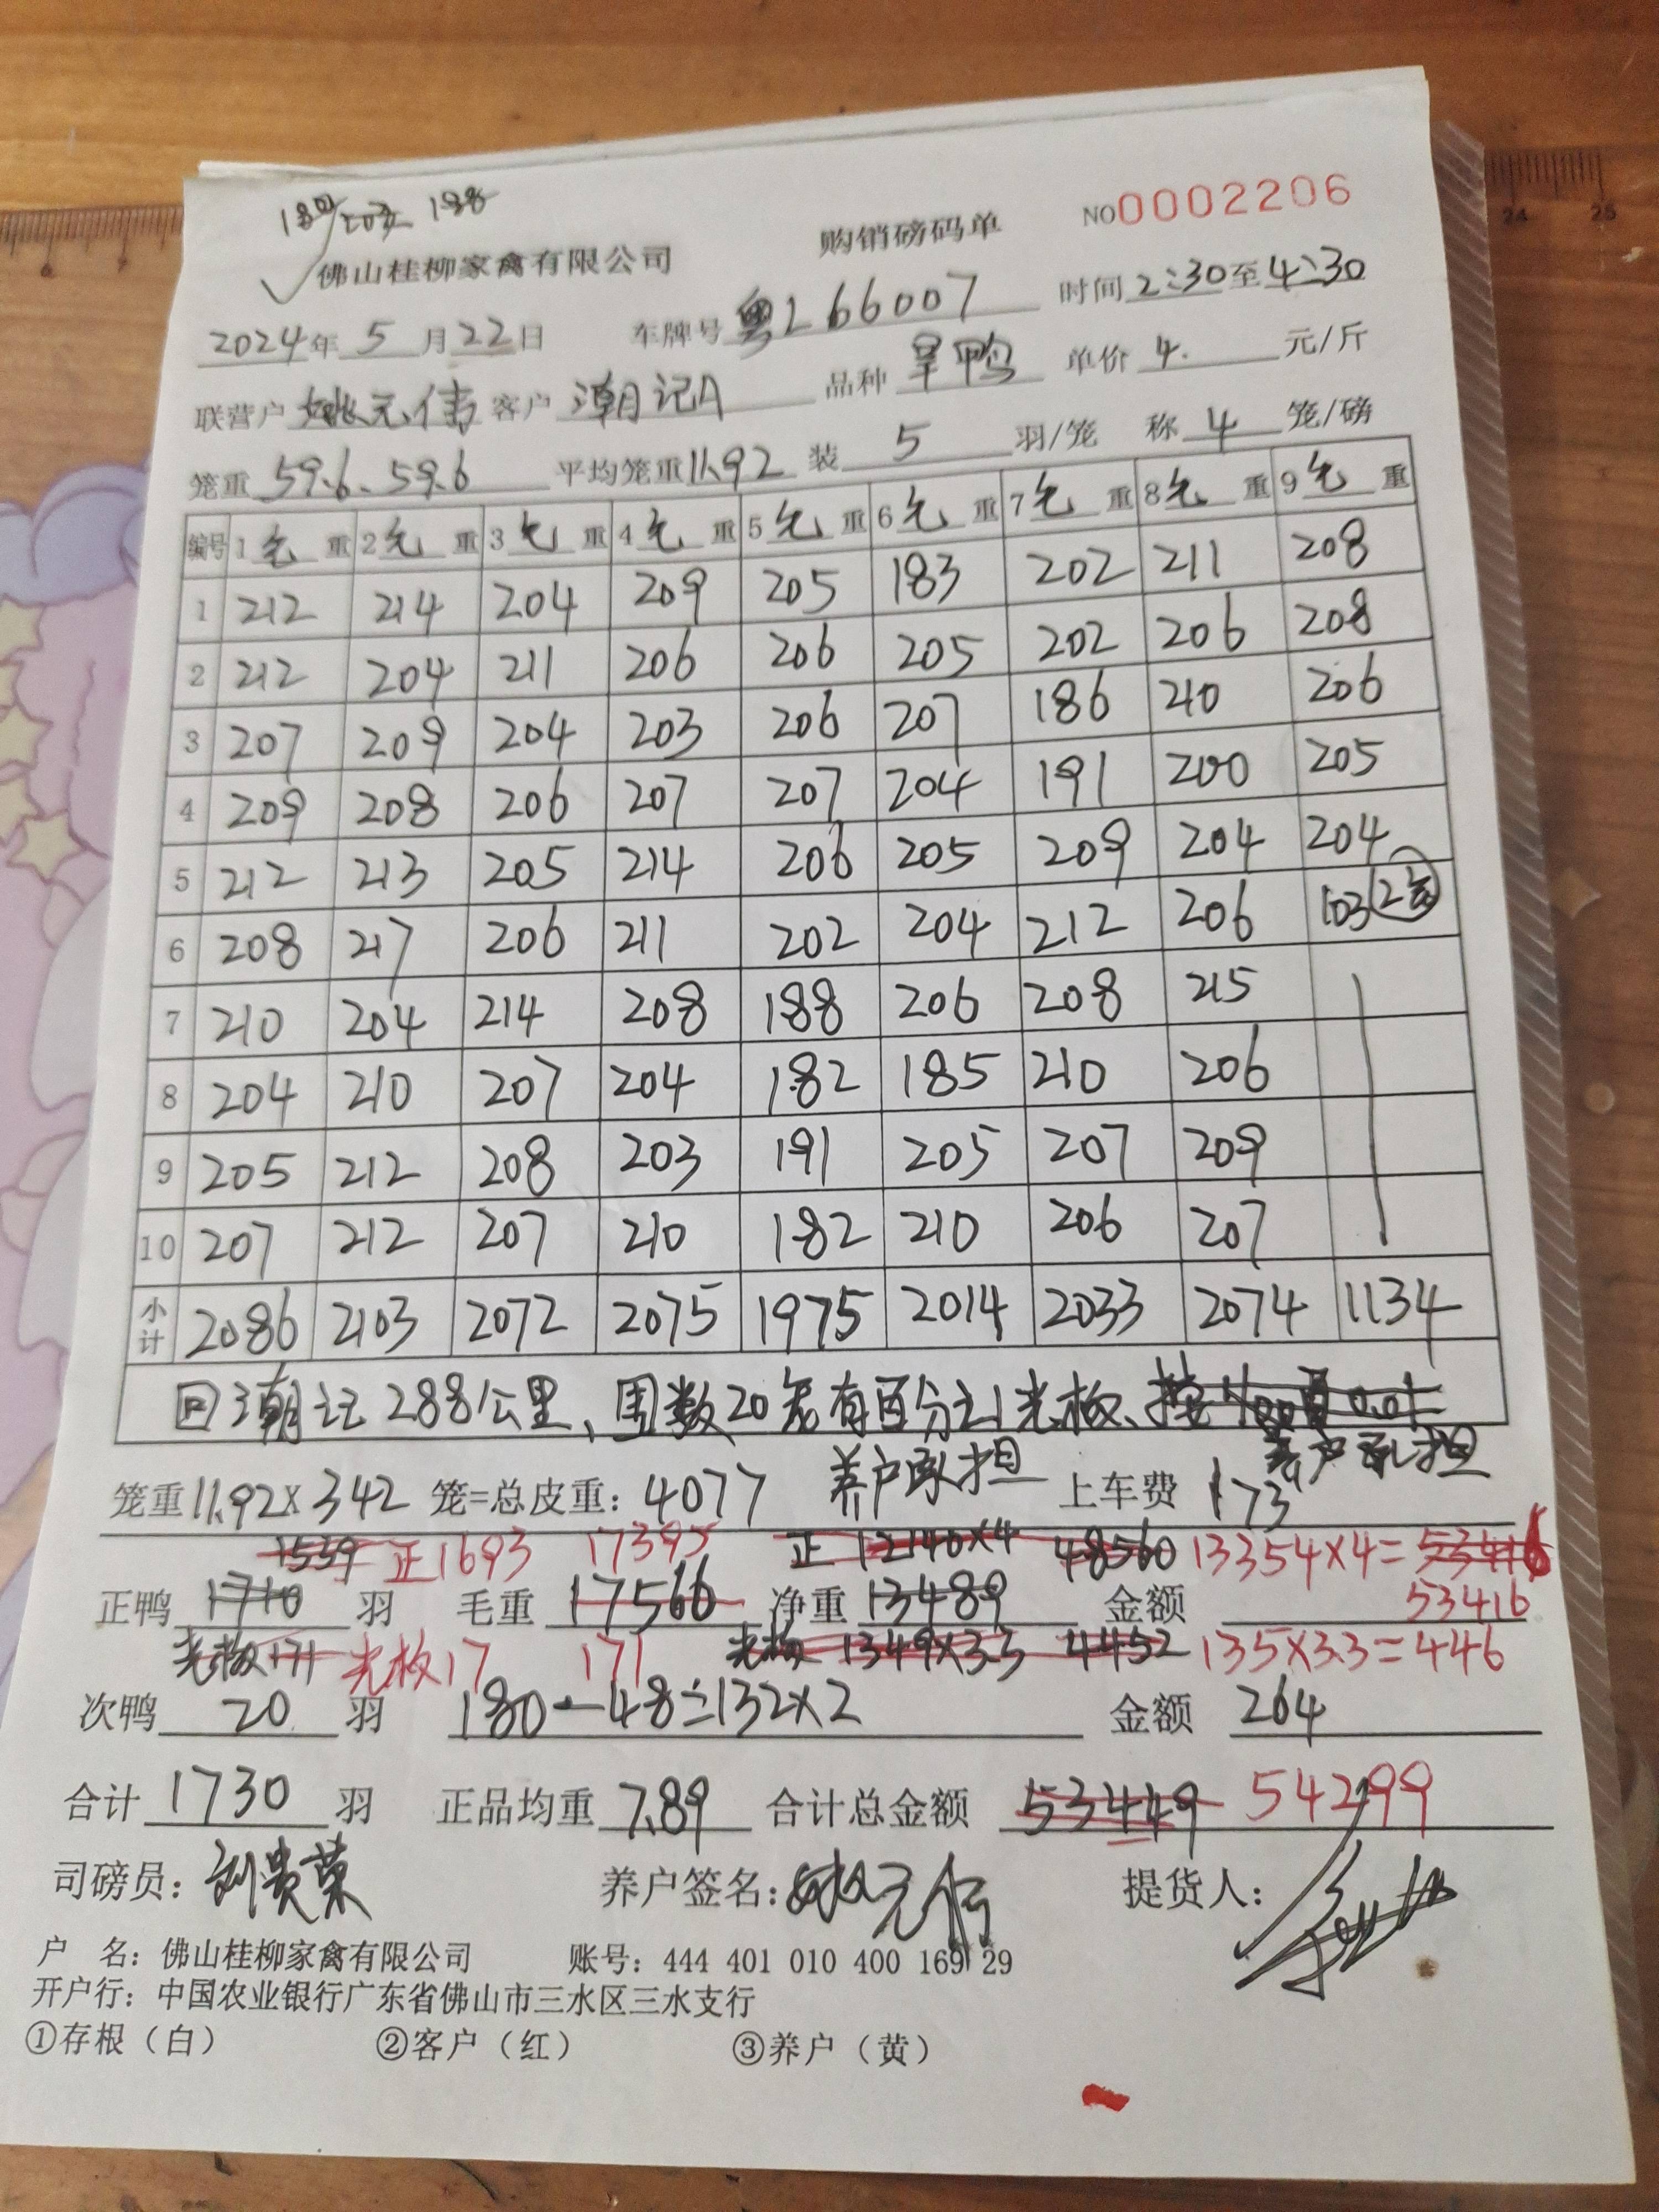 188
佛山桂柳家禽有限公司 购销磅码单 NO0002206
2024年 5 月 22 日 车牌号 粤L66007 时间 2:30 至 4:30
联营户 姚元伟 客户 潮记A 品种 旱鸭 单价 4. 元/斤
笼重 59.6、59.6 平均笼重 11.92 装 5 羽/笼 称 4 笼/磅
编号 1 毛 重 2 毛 重 3 毛 重 4 毛 重 5 毛 重 6 毛 重 7 毛 重 8 毛 重 9 毛 重
1 212 214 204 209 205 183 202 211 208
2 212 204 211 206 206 205 202 206 208
3 207 209 204 203 206 207 186 210 206
4 209 208 206 207 207 204 191 200 205
5 212 213 205 214 206 205 209 204 204
6 208 217 206 211 202 204 212 206 103
7 210 204 214 208 188 206 208 215
8 204 210 207 204 182 185 210 206
9 205 212 208 203 191 205 207 209
10 207 212 207 210 182 210 206 207
小计 2086 2103 2072 2075 1975 2014 2033 2074 1134
回潮记288公里、周数20笼有百分之1光板、
养户承担 养户承担
笼重 11.92×342 笼=总皮重: 4077 上车费 173
1539 正1693 17395 正 12140×4 48560 13354×4=53416
正鸭 1710 羽 毛重 17566 净重 13489 金额 53416
光板171 光板17 171 光板 1349×3.3 4452 135×3.3=446
次鸭 20 羽 180-48=132×2 金额 264
合计 1730 羽 正品均重 7.89 合计总金额 53449 54299
司磅员: 刘贵荣 养户签名: 姚元伟 提货人:
户 名: 佛山桂柳家禽有限公司 账号: 444 401 010 400 169 29
开户行: 中国农业银行广东省佛山市三水区三水支行
①存根（白） ②客户（红） ③养户（黄）